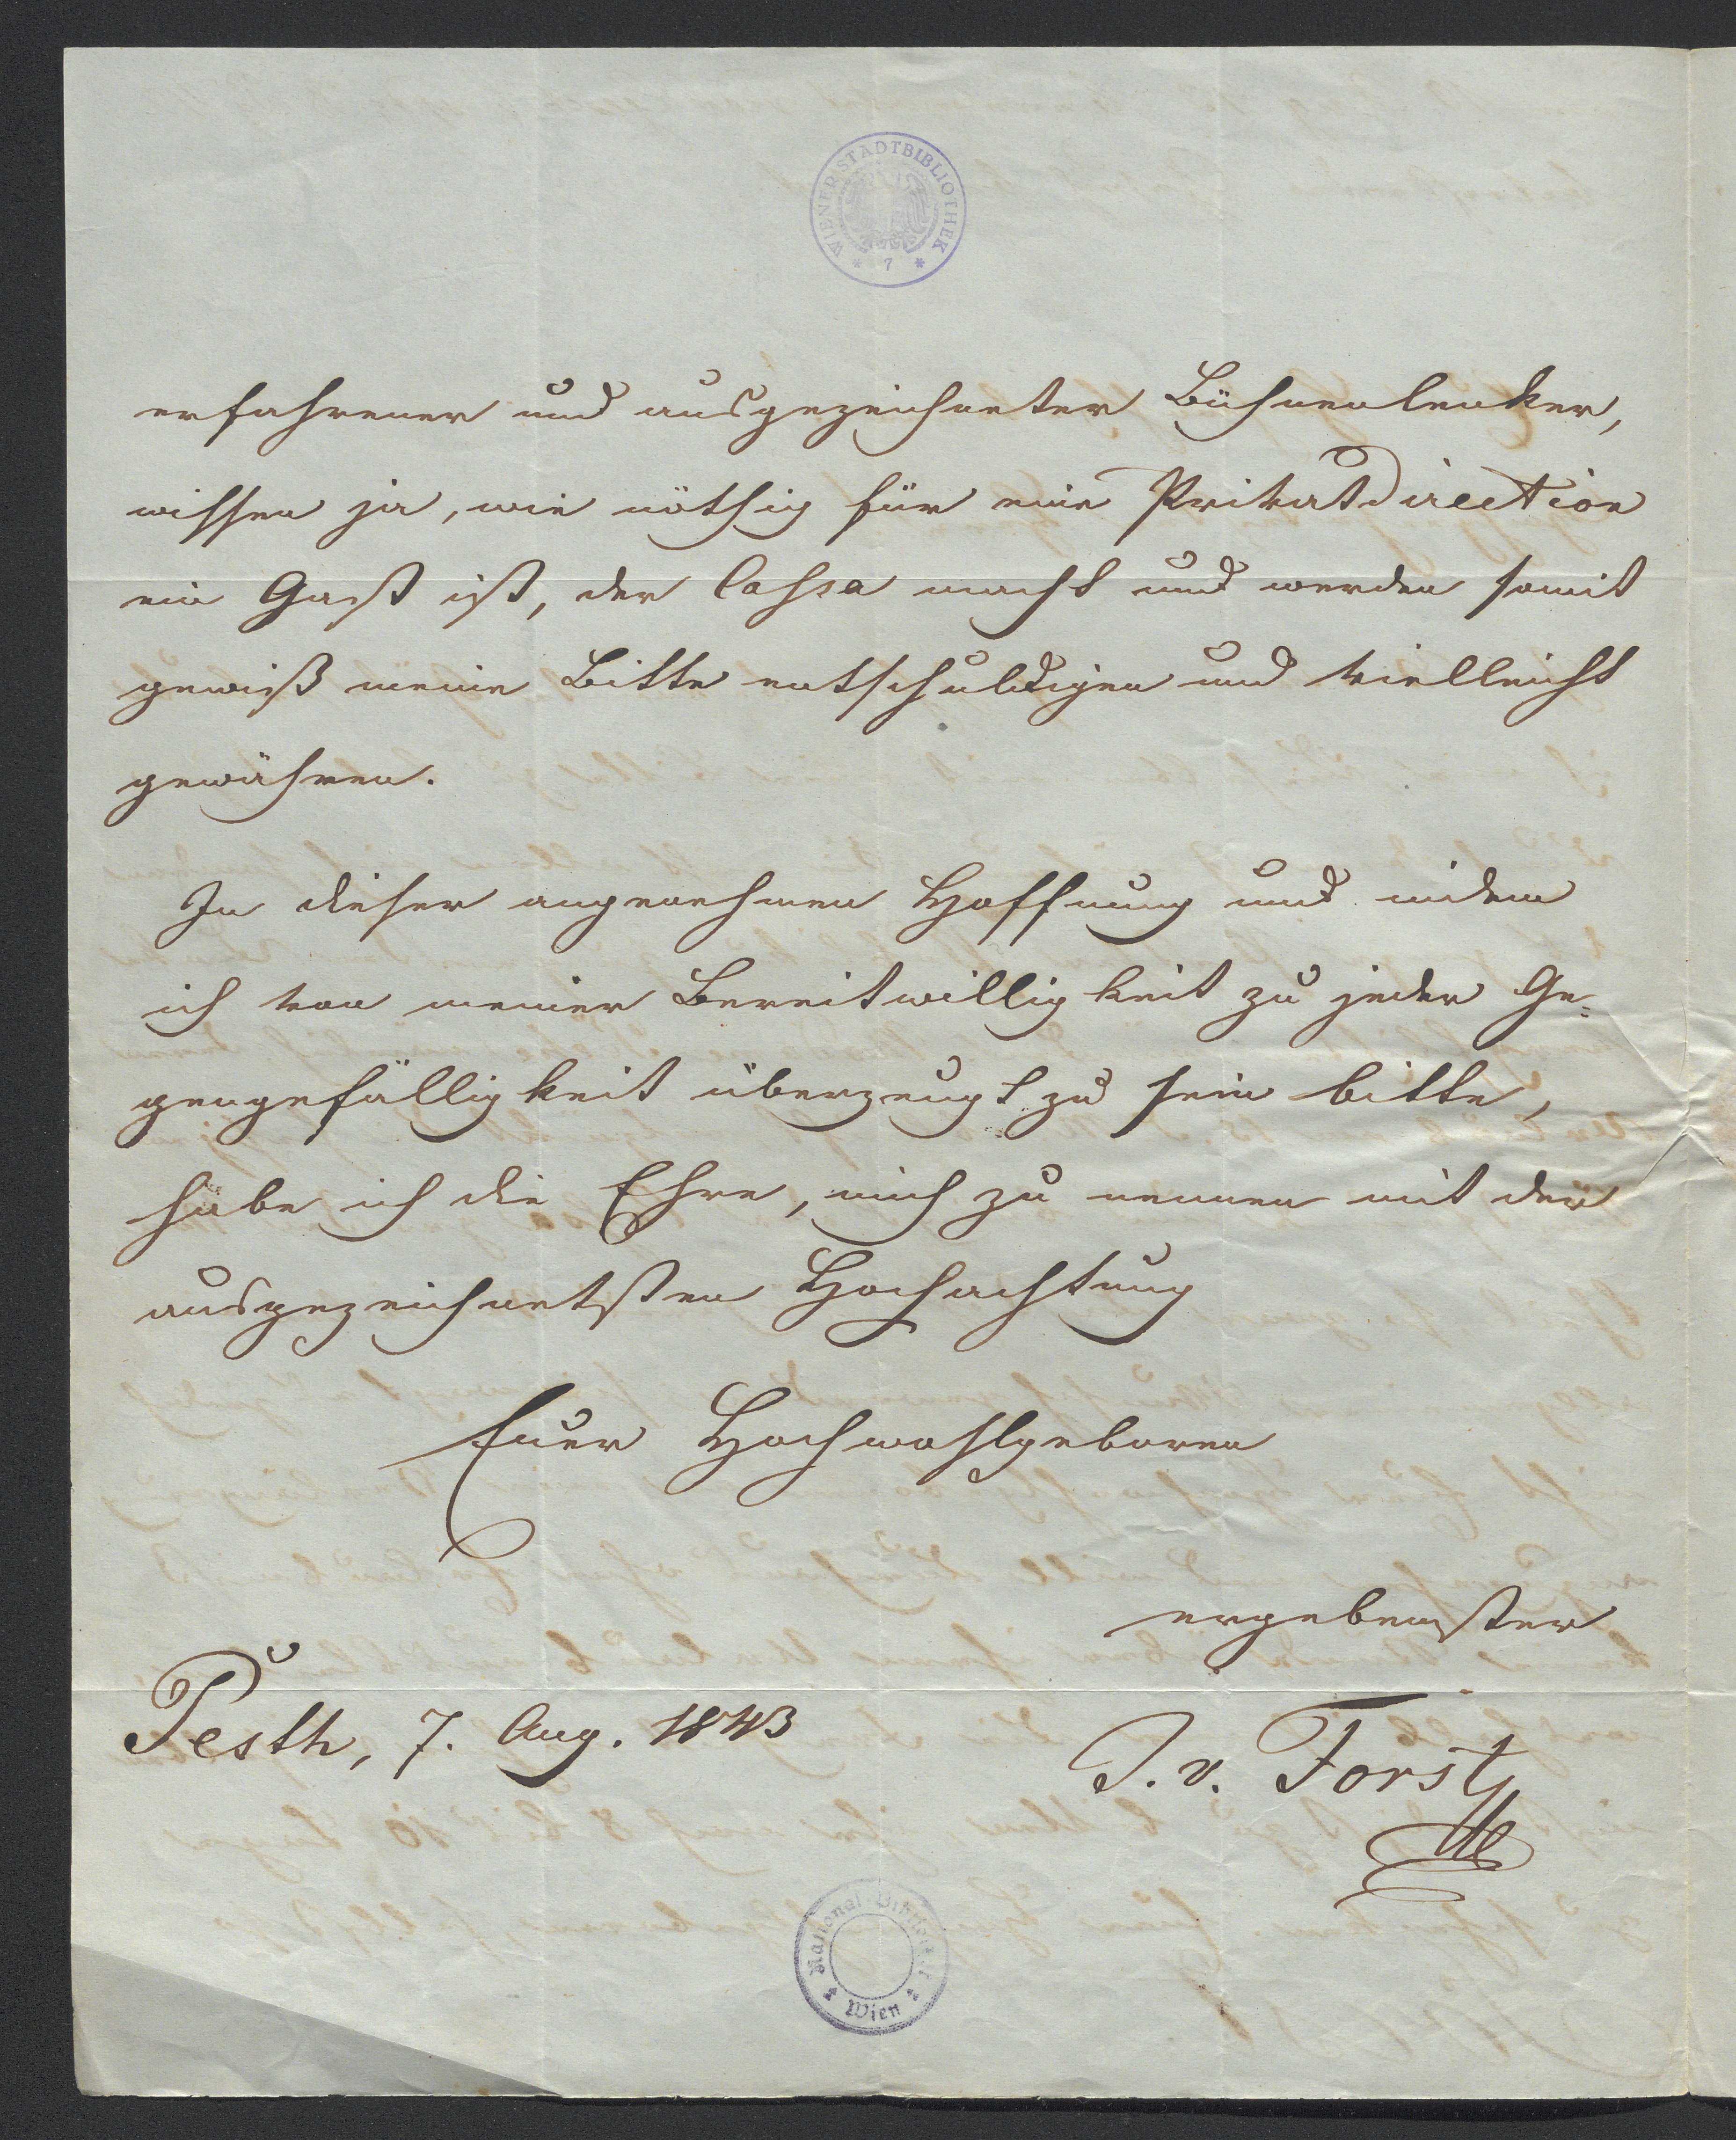 WIENER STADTBIBLIOTHEK
* 7 *
erfahrener und ausgezeichneter Bühnenlenker,
wissen ja, wie nöthig für eine Privatdirection
ein Gast ist, der Cassa macht und werden somit
gewiß meine Bitte entschuldigen und vielleicht
gewähren.
In dieser angenehmen Hoffnung und indem
ich von meiner Bereitwilligkeit zu jeder Ge-
gengefälligkeit überzeugt zu sein bitte,
habe ich die Ehre, mich zu nennen mit der
ausgezeichnetsten Hochachtung
Euer Hochwohlgeboren
ergebenster
Pesth, 7. Aug. 1843
J. v. Forst
National Bibliothek
Wien